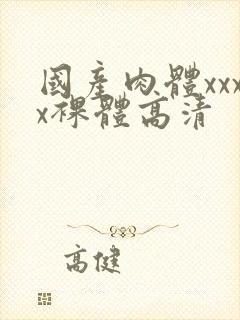 國產肉體xxx
x裸體高清
高健